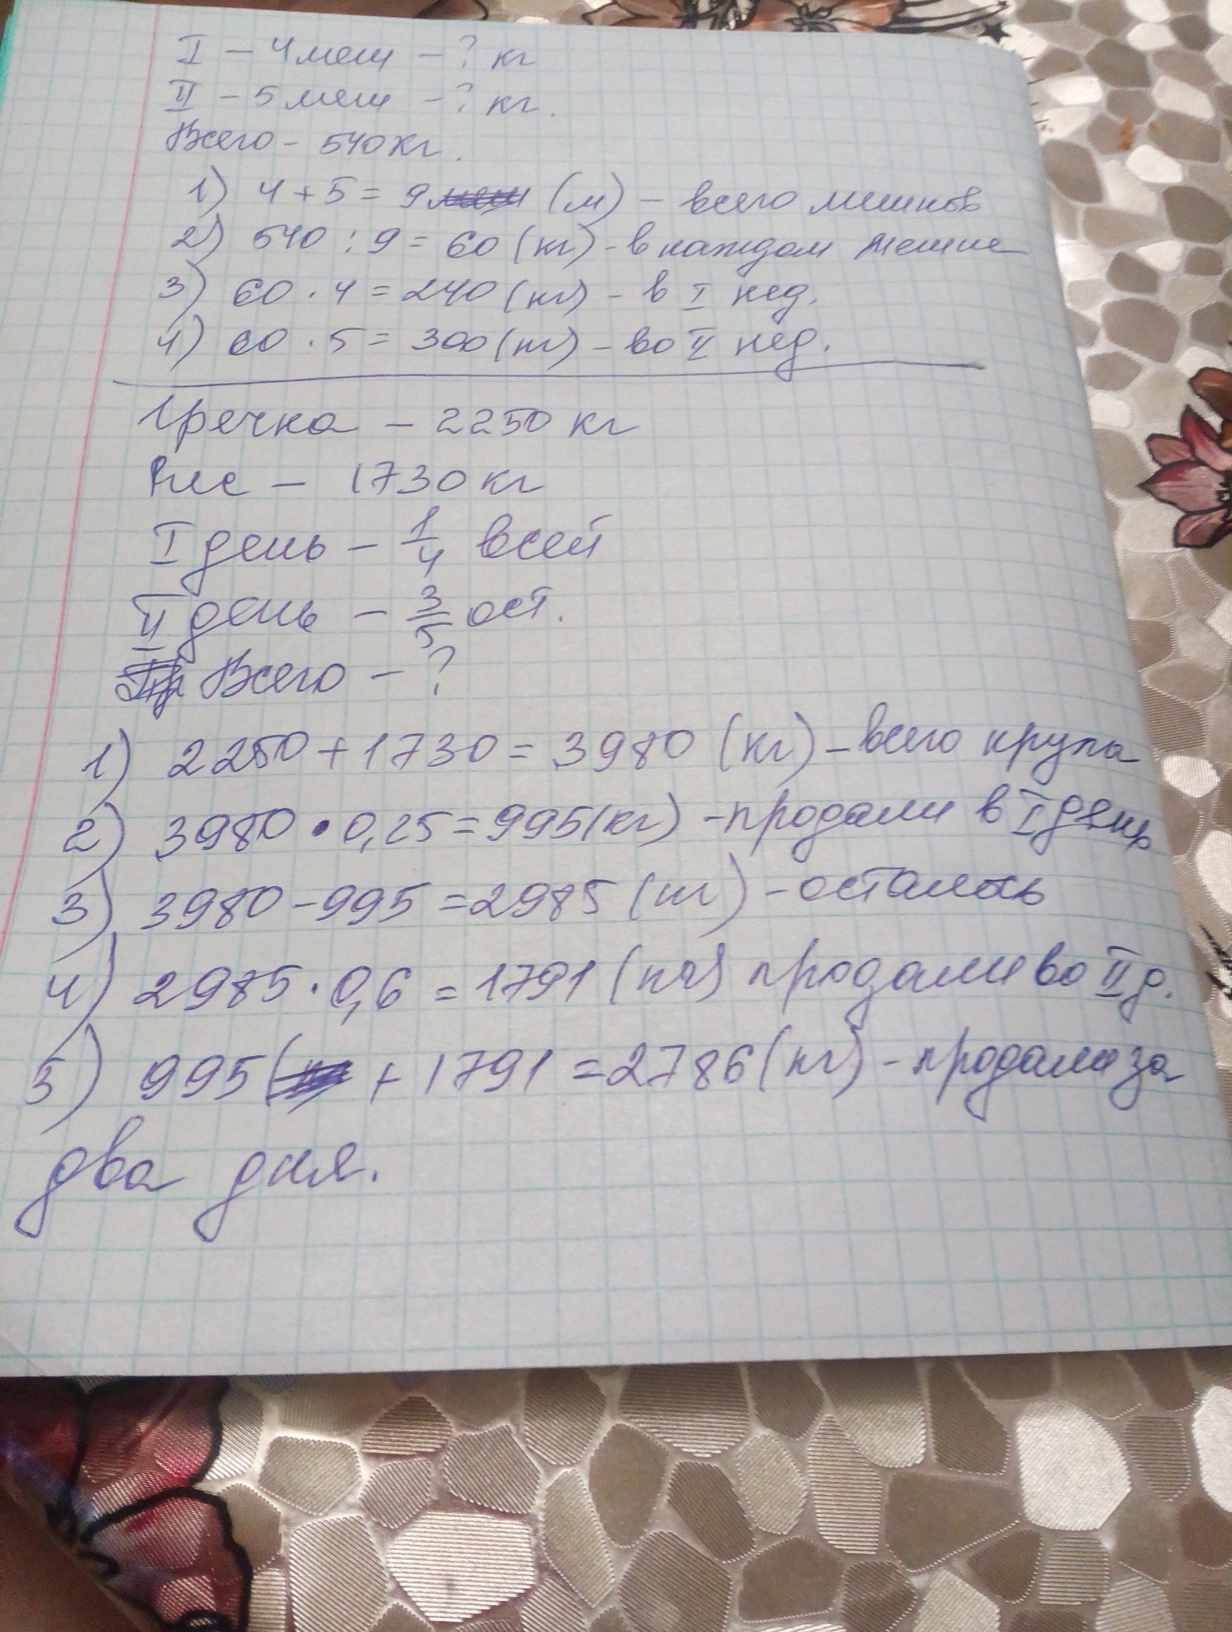 I – 4 меш – ? кг
II – 5 меш – ? кг.
Всего – 540 кг.
1) 4 + 5 = 9 (м) – всего мешков
2) 540 : 9 = 60 (кг) – в каждом мешке
3) 60 · 4 = 240 (кг) – в I нед.
4) 60 · 5 = 300 (кг) – во II нед.
Гречка – 2250 кг
Рис – 1730 кг
I день – 1/4 всей
II день – 3/5 ост.
Всего – ?
1) 2250 + 1730 = 3980 (кг) – всего крупа
2) 3980 · 0,25 = 995 (кг) – продали в I день
3) 3980 – 995 = 2985 (кг) – осталось
4) 2985 · 0,6 = 1791 (кг) продали во II д.
5) 995 ( + 1791 = 2786 (кг) – продали за
два дня.